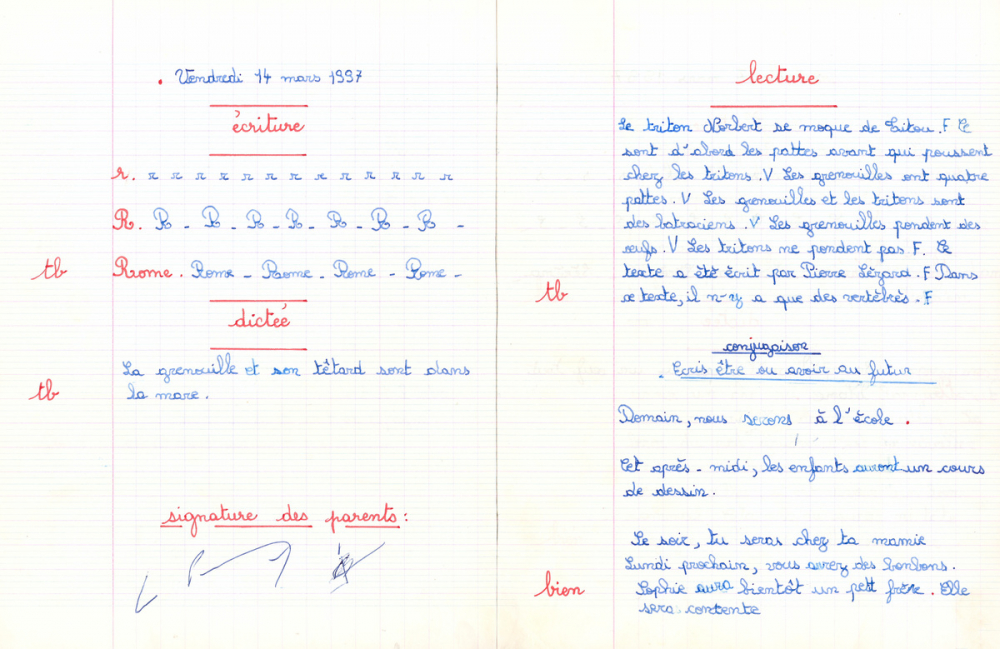 . Vendredi 14 mars 1997
écriture
r. r r r r r r r r r r r r
R. R - R - R - R - R - R - R -
tb
Rome. Rome - Rome - Rome - Rome -
dictée
tb
La grenouille et son têtard sont dans
la mare.
signature des parents:
lecture
Le triton Norbert se moque de Titou. F Ce
sont d'abord les pattes avant qui poussent
chez les tritons. V Les grenouilles ont quatre
pattes. V Les grenouilles et les tritons sont
des batraciens. V Les grenouilles pondent des
œufs. V Les tritons ne pondent pas F. Ce
texte a été écrit par Pierre Lézard. F Dans
ce texte, il n-y a que des vertébrés. F
tb
conjugaison
. Ecris être ou avoir au futur
Demain, nous serons à l'école.
Cet après-midi, les enfants auront un cours
de dessin.
Le soir, tu seras chez ta mamie
Lundi prochain, vous aurez des bonbons.
bien
Sophie aura bientôt un petit frère. Elle
sera contente